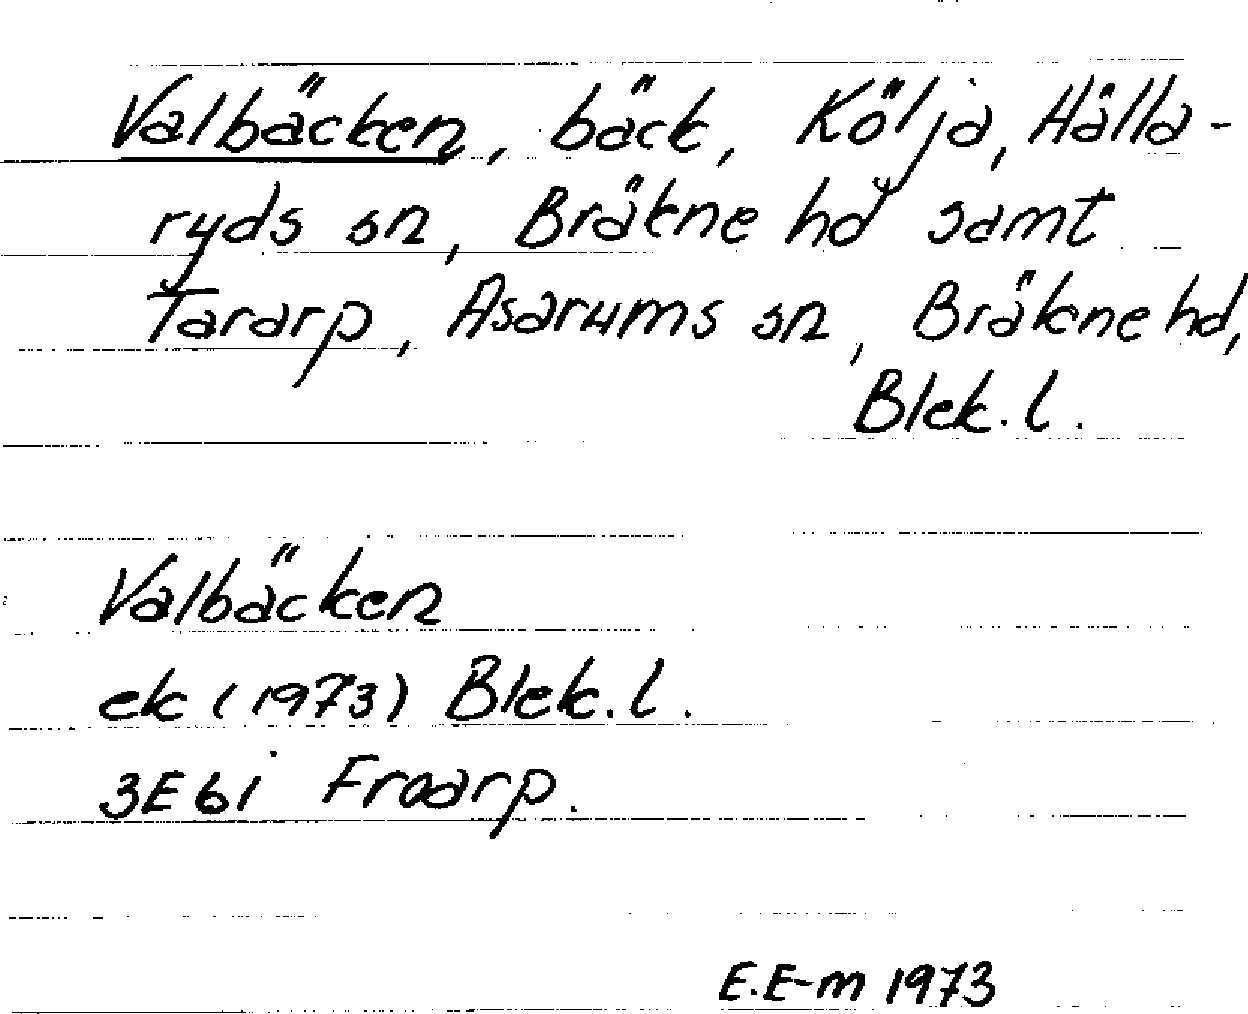 Valbäcken, bäck, Kölja, Hälla-
ryds sn, Bräkne hd samt
Tararp, Asarums sn, Bräkne hd,
Blek. l.
Valbäcken
ek (1973) Blek. l.
3E6i Froarp.
E.E-m 1973